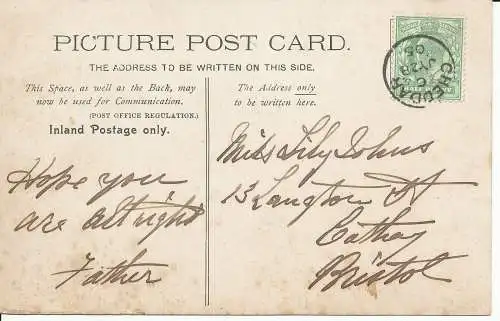 PICTURE POST CARD.
THE ADDRESS TO BE WRITTEN ON THIS SIDE.
This Space, as well as the Back, may
now be used for Communication.
(POST OFFICE REGULATION.)
Inland Postage only.
Hope you
are altright
Father
The Address only
to be written here.
Miss Lily Johns
13 Langton St
Cathay
Bristol
CHEDDAR
JY 28
05
HALF PENNY